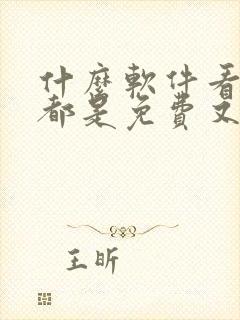 什麼軟件看
都是免費又
王昕